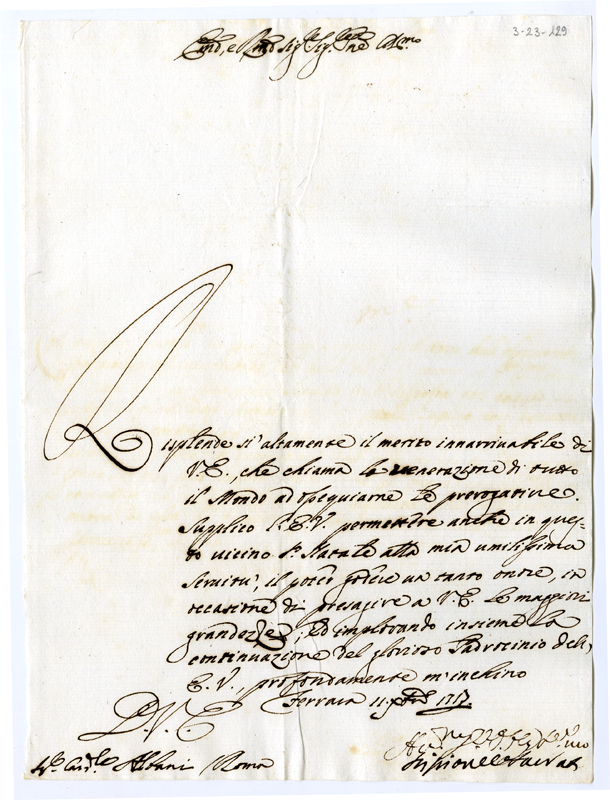 3-23-129
Emo, e Rmo Sig.re Sig.re Pne Col.mo
Risplende si' altamente il merito innarrivabile di
V.E., che chiama la venerazione di tutto
il Mondo ad ossequiarne le prerogative.
Supplico l'E.V. permettere anche in ques-
to vicino S. Natale alla mia umilissima
servitu', il poter godere un tanto onore, in
occasione di presagire a V.E. le maggiori
grandezze; ed implorando insieme la
continuazione del glorioso Padrocinio dell'
E.V., profondamente m'inchino
Ferrara 11 Xbre 1717.
D.V.E.
Card.le Albani Roma